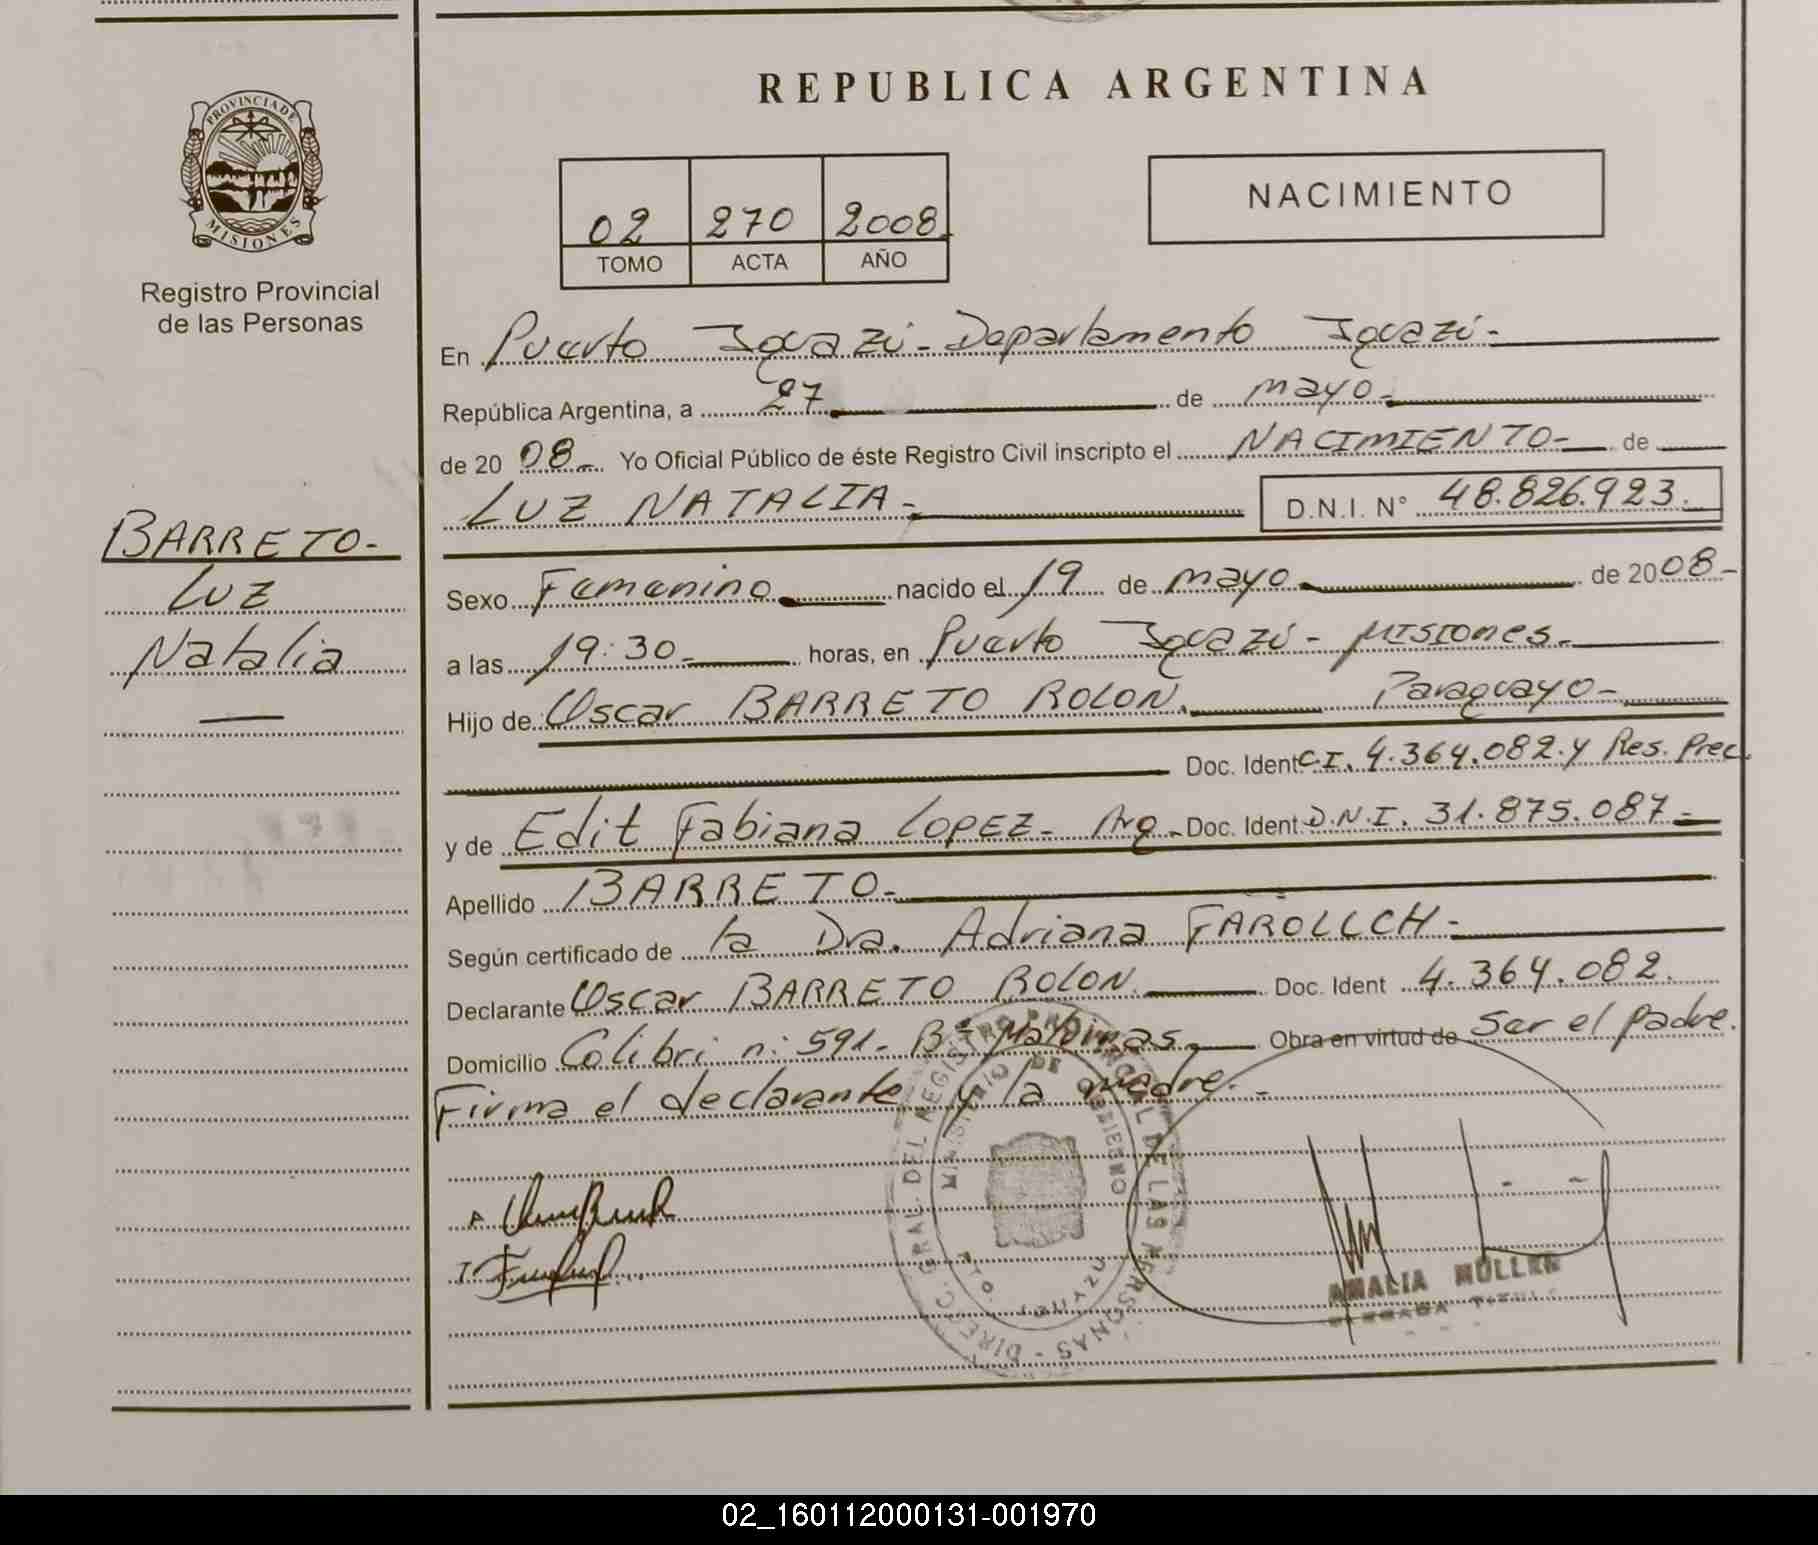 REPUBLICA ARGENTINA
PROVINCIA DE
MISIONES
Registro Provincial
de las Personas
02 270 2008
TOMO ACTA AÑO
NACIMIENTO
En Puerto Iguazú - Departamento Iguazú -
República Argentina, a 27 de mayo -
de 20 08 - Yo Oficial Público de éste Registro Civil inscripto el NACIMIENTO - de
LUZ NATALIA - D.N.I. N° 48.826.923.
BARRETO -
LUZ
Natalia
Sexo Femenino nacido el 19 de mayo de 20 08 -
a las 19:30 - horas, en Puerto Iguazú - Misiones -
Hijo de: Oscar BARRETO ROLON. Paraguayo -
Doc. Ident C.I. 4.364.082. y Res. Prec.
y de Edit Fabiana LOPEZ - Arg - Doc. Ident. D.N.I. 31.875.087 -
Apellido BARRETO -
Según certificado de la Dra. Adriana FAROLLCH -
Declarante Oscar BARRETO ROLON. Doc. Ident 4.364.082.
Domicilio Colibri n: 591 - B° Malvinas - Obra en virtud de Ser el padre.
Firma el declarante y la madre. -
DIRECC. GRAL. DEL REGISTRO PROVINCIAL DE LAS PERSONAS -
MINISTERIO DE GOBIERNO
PTO. IGUAZU
AMALIA MULLER
02_160112000131-001970